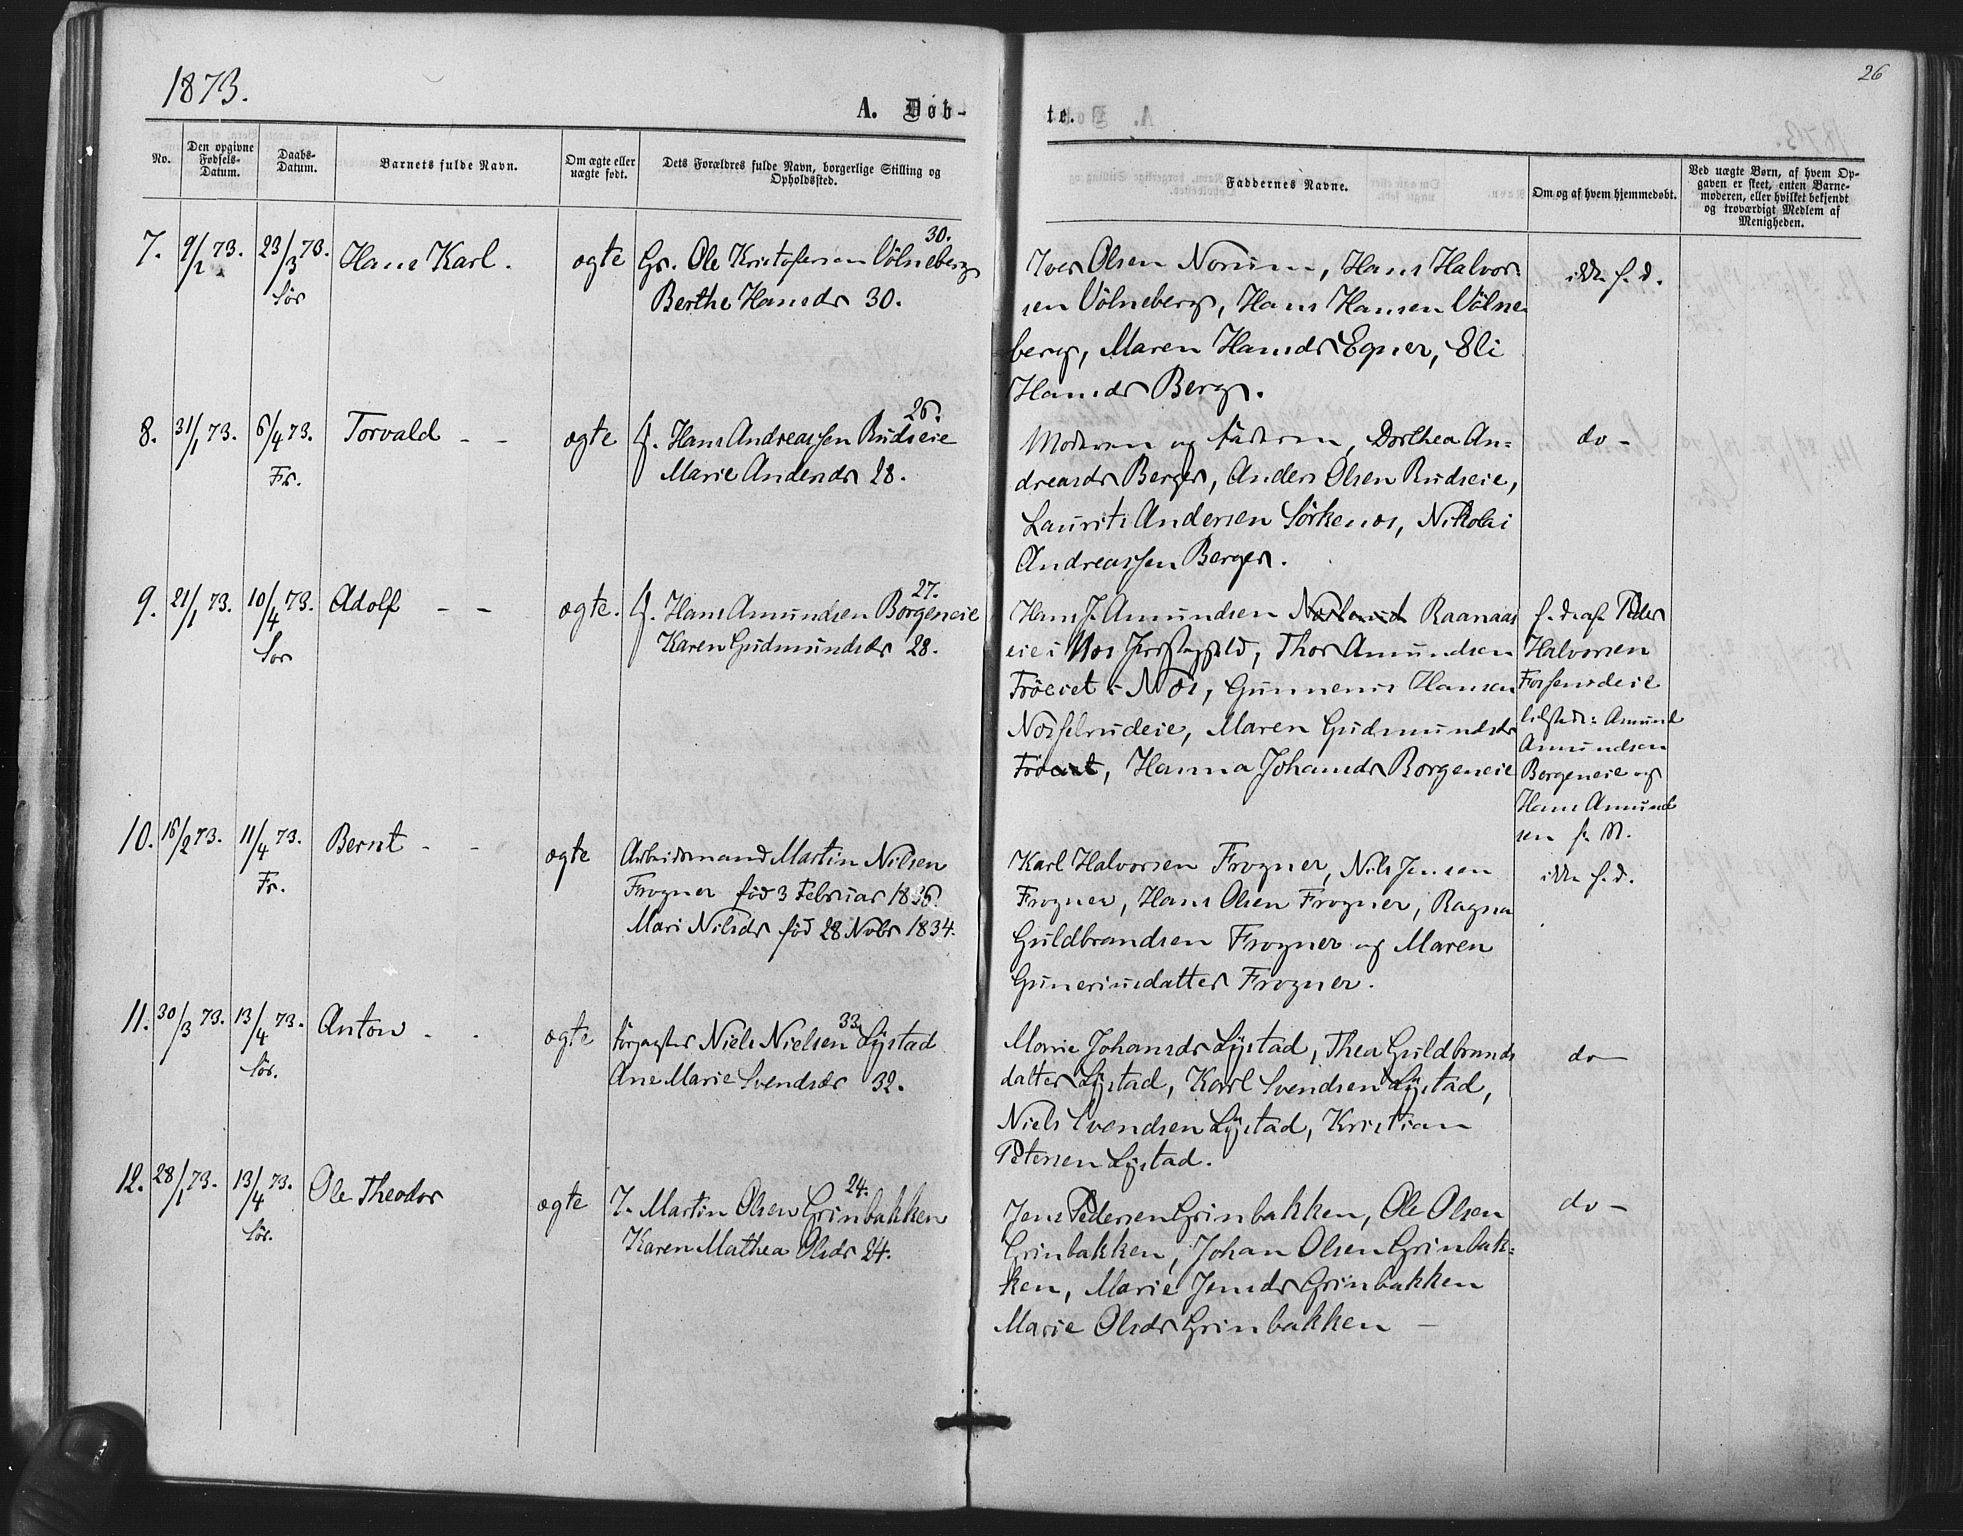 1873.
26
A. Døb-
te.
No.
Den opgivne Fødsels-Datum.
Daabs-Datum.
Barnets fulde Navn.
Om ægte eller uægte født.
Dets Forældres fulde Navn, borgerlige Stilling og Opholdssted.
Faddernes Navne.
Om og af hvem hjemmedøbt.
Ved uægte Børn, af hvem Op-
gaven er skeet, enten Barne-
moderen, eller hvilket bekjendt
og troværdigt Medlem af
Menigheden.
7. 9/2 73. 23/3 73. Sør Hans Karl. ægte
30.
Gr. Ole Kristofersen Völneberg
Berthe Hansdr 30.
Iver Olsen Norum, Hans Halvor-
sen Völneberg, Hans Hansen Völne-
berg, Maren Hansdr Egner, Eli
Hansdr Berg.
ikke h. d.
8. 31/1 73. 6/4 73. Fr. Torvald - - ægte
26.
f. Hans Andreassen Rudseie
Marie Andersdr 28.
Moderen og faderen, Dorthea An-
dreasdr Berger, Anders Olsen Rudseie,
Laurits Andersen Sörkenæs, Nikolai
Andreassen Berger.
do -
9. 21/1 73. 10/4 73. Sør Adolf - - ægte.
27.
f. Hans Amundsen Borgeneie
Karen Gudmundsdr 28.
Hans J. Amundsen Raanaas
eie i Næs, Thor Amundsen
Fröeiet i Næs, Gunnerius Hansen
Næsfelrudeie, Maren Gudmundsdr
Fröeiet, Hanna Johansdr Borgeneie
h. d. af Peder
Halvorsen
Forsenrdeie
tilstede: Amund
Amundsen
Borgeneie og
Hans Amund
sen
10. 16/2 73. 11/4 73. Fr. Bernt - - ægte
Arbeidsmand Martin Nilsen
Frogner fød 3 Februar 1836.
Mari Nilsdr fød 28 Novbr 1834.
Karl Halvorsen Frogner, Nils Jensen
Frogner, Hans Olsen Frogner, Ragna
Guldbrandsen Frogner og Maren
Guneriusdatter Frogner.
ikke h. d.
11. 30/3 73. 13/4 73. Sør. Anton - - ægte
33.
forpagter Niels Nielsen Lystad
Ane Marie Svendsdr 32.
Marie Johansdr Lystad, Thea Guldbrands
datter Lystad, Karl Svendsen Lystad,
Niels Svendsen Lystad, Kristian
Petersen Lystad.
do -
12. 28/1 73. 13/4 73. Sør. Ole Theodor ægte
24.
I. Martin Olsen Grinbakken
Karen Mathea Olsdr 24.
Jens Pedersen Grinbakken, Ole Olsen
Grinbakken, Johan Olsen Grinbak-
ken, Marie Jensdr Grinbakken
Marie Olsdr Grinbakken -
do -